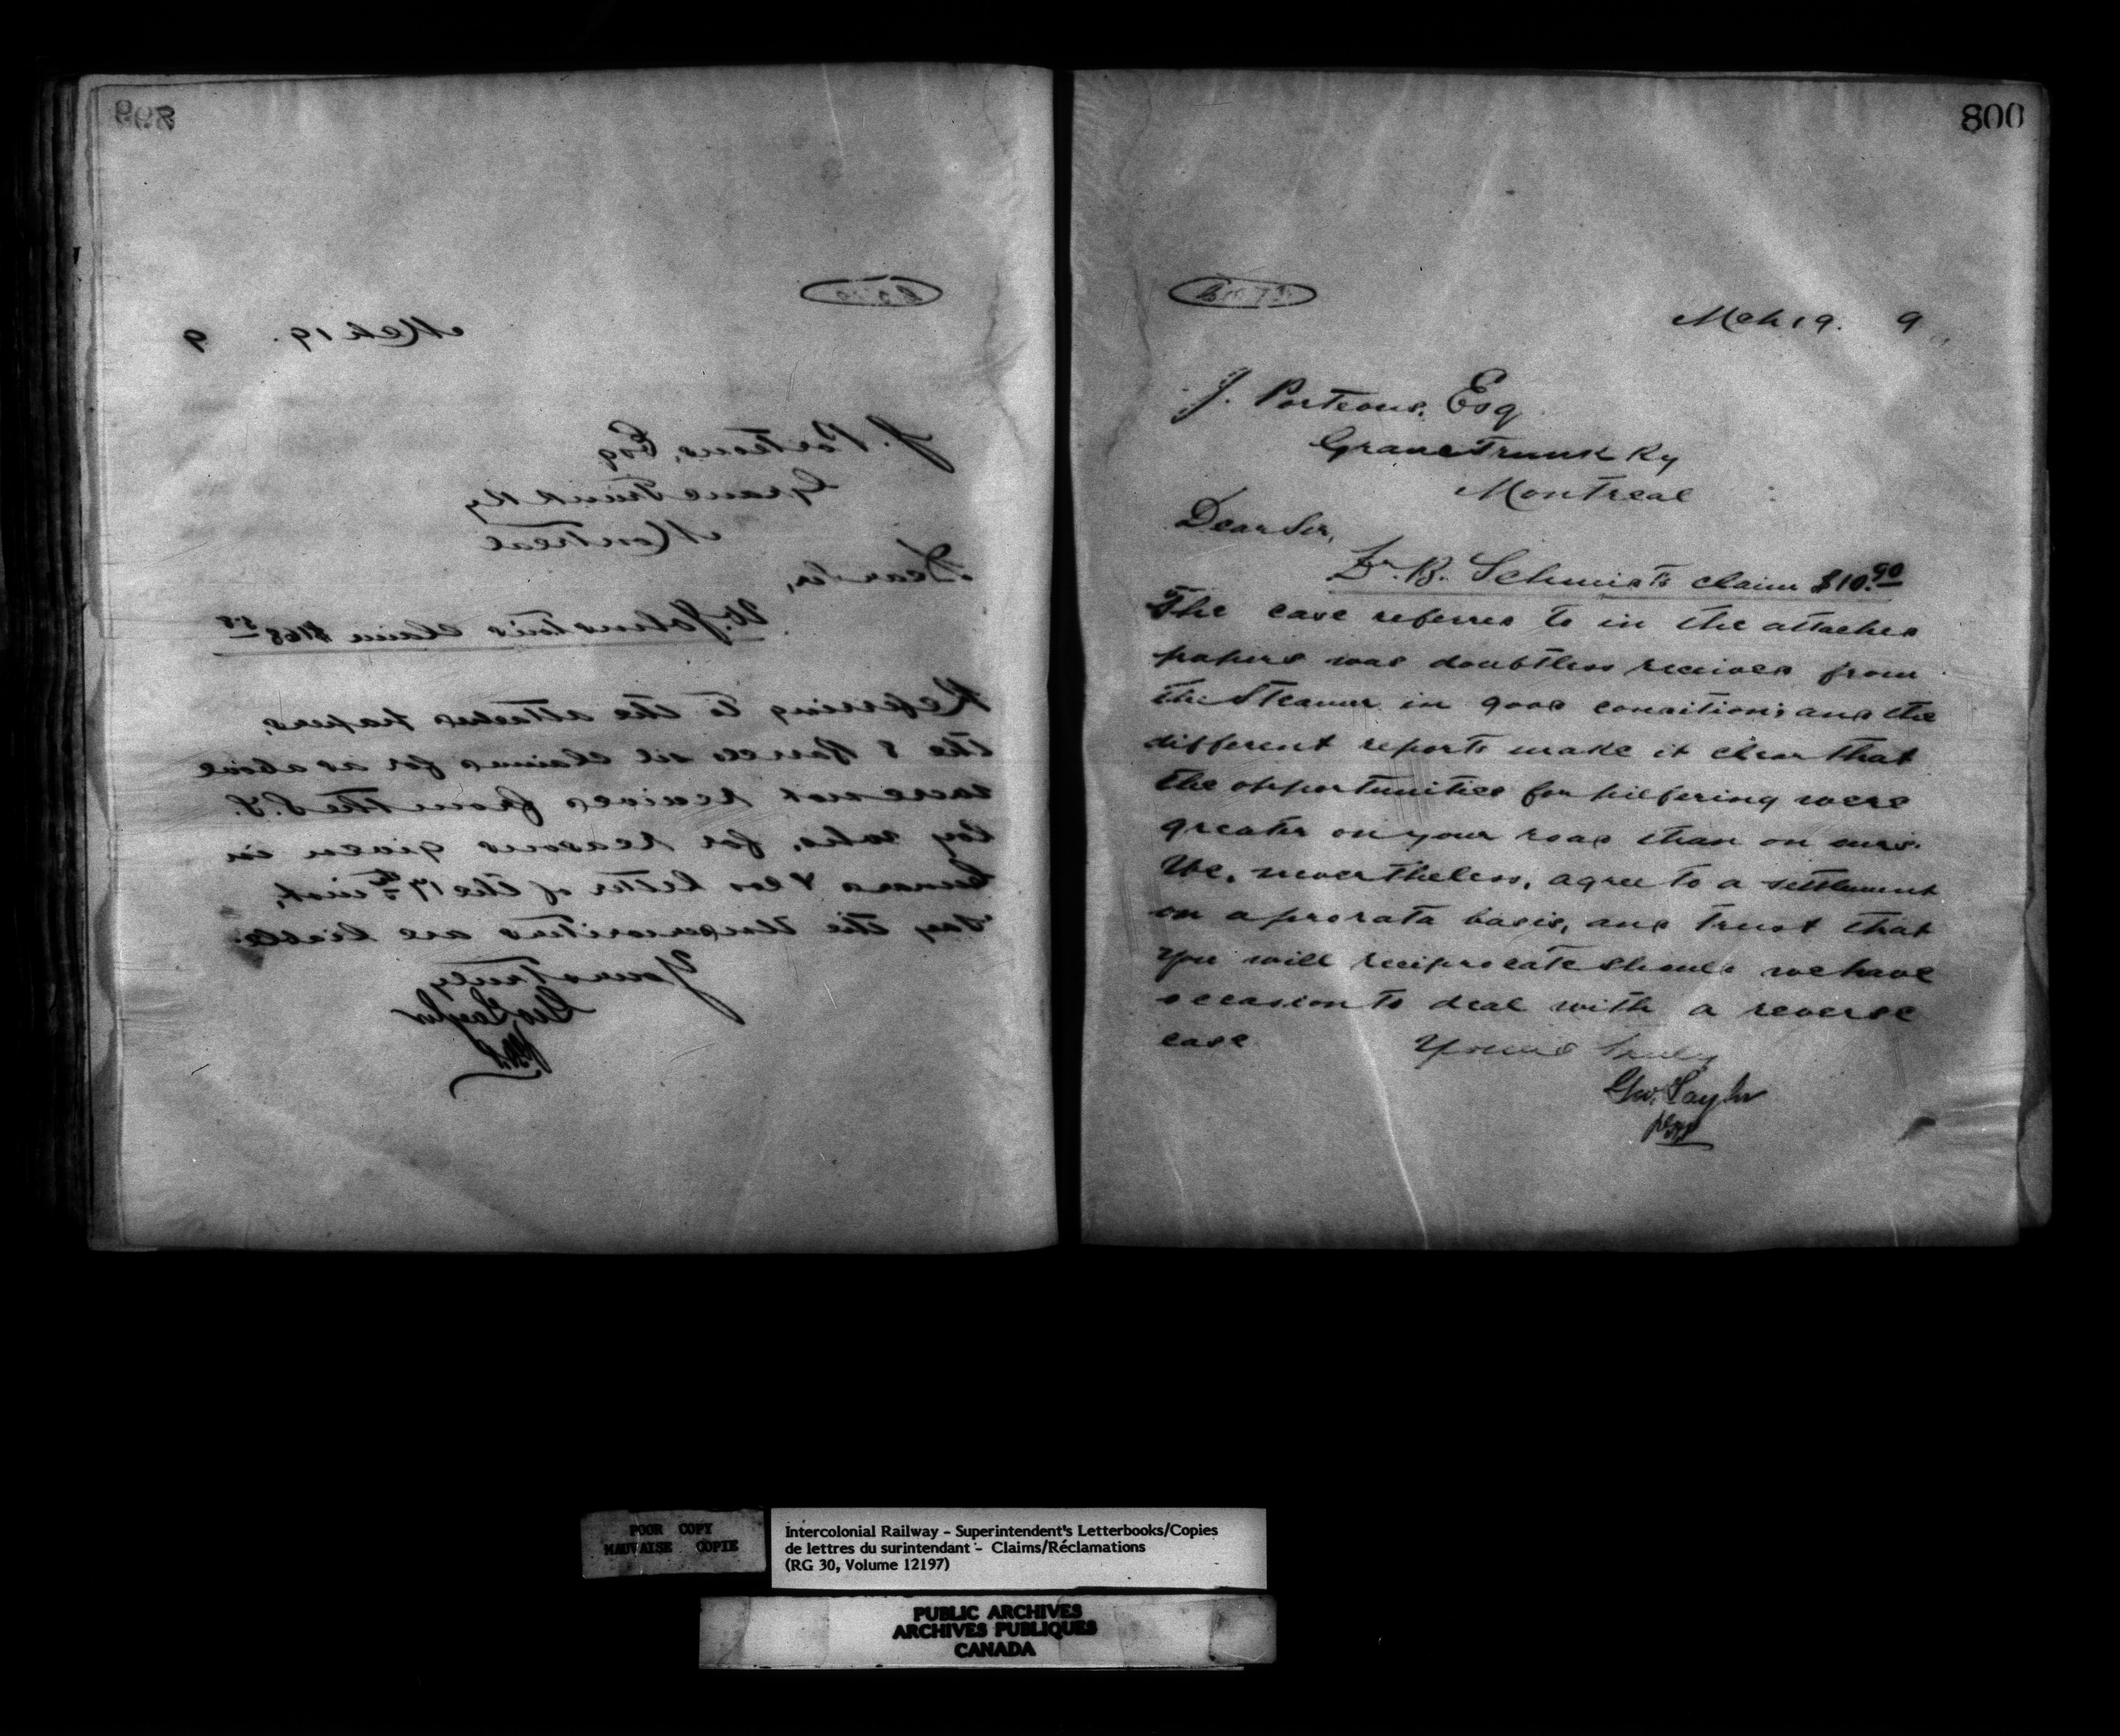 799
Mch 19. 9
J. Porteous, Esq
Grand Trunk Ry
Montreal
Dear Sir,
W. Johnston's claim $168
Referring to the attached papers,
the 8 barrels oil claimed for as above
were not received from the S.S.
for reasons given in
Cunard & Cos letter of the 17th inst,
say the Underwriters are liable.
Yours truly
Geo Taylor
800
Mch 19. 9
J. Porteous, Esq
Grand Trunk Ry
Montreal
Dear Sir,
B. Schmidts claim $10.90
The case referred to in the attached
papers was doubtless received from
the Steamer in good condition; and the
different reports make it clear that
the opportunities for pilfering were
greater on your road than on ours.
We, nevertheless, agree to a settlement
on a prorata basis, and trust that
you will reciprocate should we have
occasion to deal with a reverse
case
Yours truly
Geo. Taylor
POOR COPY
MAUVAISE COPIE
Intercolonial Railway - Superintendent's Letterbooks/Copies
de lettres du surintendant - Claims/Réclamations
(RG 30, Volume 12197)
PUBLIC ARCHIVES
ARCHIVES PUBLIQUES
CANADA